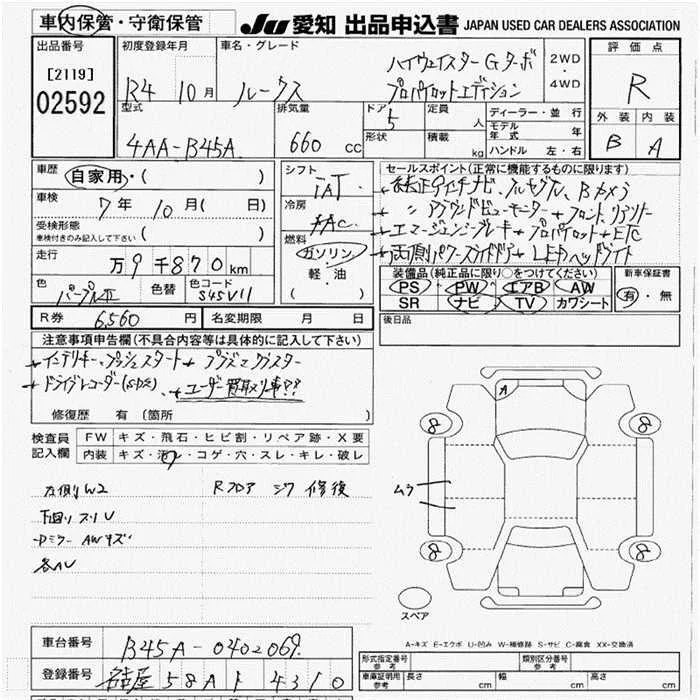 車内保管・守衛保管
JU 愛知 出品申込書 JAPAN USED CAR DEALERS ASSOCIATION
出品番号
[2119]
02592
初度登録年月
R4 10月
車名・グレード
ルークス
ハイウェイスターGターボ
プロパイロットエディション
2WD
・
4WD
評価点
R
外装 内装
B A
型式
4AA-B45A
排気量
660 cc
ドア
5
形状
定員
人
積載
kg
ディーラー・並行
モデル年式 年
ハンドル 左・右
車歴
自家用・( )
車検
7年 10月( 日)
受検形態
車検付きのみ記入して下さい
( )
走行
万9千870km
色
パープルII
色替
色コード
S45V11
シフト
IAT
冷房
AAC
燃料
ガソリン
軽・油
( )
セールスポイント(正常に機能するものに限ります)
+純正9インチナビ、フルセグTV、Bカメラ
+〃 アラウンドビューモニター+フロント、リアソナー
+エマージェンシーブレーキ+プロパイロット+ETC
+両側パワースライドドア+LEDヘッドライト
装備品(純正品に限り○をつけてください)
PS PW エアB AW
SR ナビ TV カワシート
新車保証書
有・無
R券 6,560 円
名変期限 月 日
後日品
注意事項申告欄(不具合内容等は具体的に記入して下さい)
+インテリキー、プッシュスタート+プラズマクラスター
+ドライブレコーダー(SD無)、+ユーザー買取り車!!
修復歴 有(箇所 )
検査員
記入欄
FW キズ・飛石・ヒビ割・リペア跡・X要
内装 キズ・汚レ・コゲ・穴・スレ・キレ・破レ
左側リW2
RフロアシワI修復
下回りスリU
PミラーAWキズ
各AU
A
8
8
ムラ
8
8
スペア
A-キズ E-エクボ U-凹み W-補修跡 S-サビ C-腐食 XX-交換済
車台番号
B45A-0402069
登録番号
名古屋 58A ト 4310
形式指定番号
参考
類別区分番号
参考
車庫証明用
参考
長さ cm
幅 cm
高さ cm